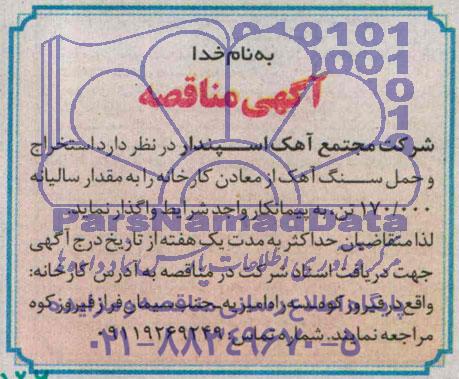 به نام خدا
آگهی مناقصه
شرکت مجتمع آهک اسپندار در نظر دارد استخراج
و حمل سنگ آهک از معادن کارخانه را به مقدار سالیانه
۱۷۰/۰۰۰ تن، به پیمانکار واجد شرایط واگذار نماید.
لذا متقاضیان حداکثر به مدت یک هفته از تاریخ درج آگهی
جهت دریافت اسناد شرکت در مناقصه به آدرس کارخانه:
واقع در فیروزکوه سه راه امیریه - جنب سیمان فراز فیروزکوه
مراجعه نمایند. شماره تماس: ۰۹۱۱۹۲۶۹۲۴۹
ParsNamadData
پایگاه اطلاع رسانی مناقصه و مزایده
۰۲۱-۸۸۳۴۹۶۷۰-۵